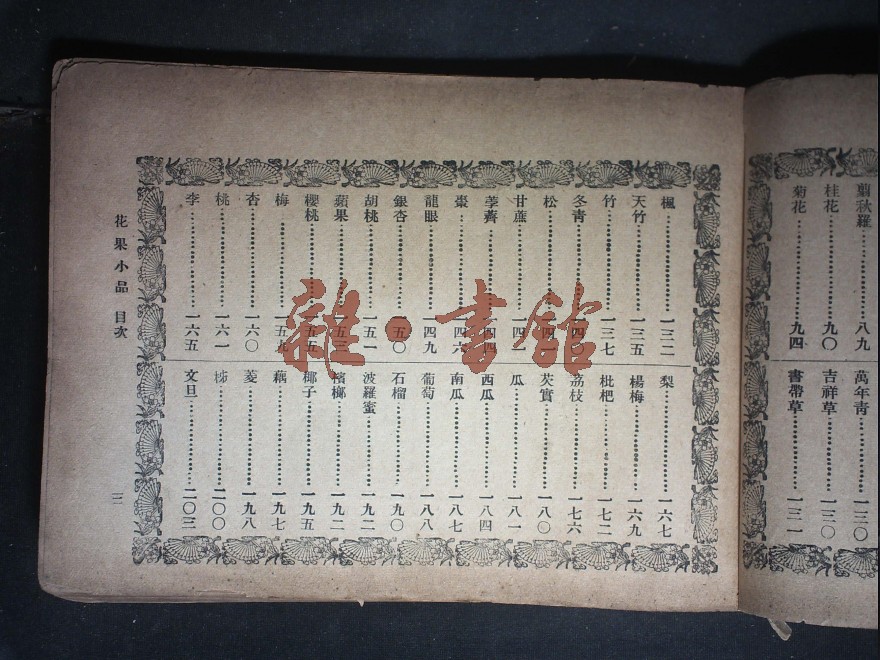 翦秋羅……八九
桂花……九〇
菊花……九四
萬年青……一三〇
吉祥草……一三〇
書帶草……一三一
楓……一三二
天竹……一三五
竹……一三七
冬青……一四〇
松……一四
甘蔗……一四一
荸薺……一四四
棗……一四六
龍眼……一四九
銀杏……一五〇
胡桃……一五一
蘋果……一五三
櫻桃……一五五
梅……一五九
杏……一六〇
桃……一六一
李……一六五
梨……一六七
楊梅……一六九
枇杷……一七二
荔枝……一七六
芡實……一八〇
瓜……一八一
西瓜……一八四
南瓜……一八七
葡萄……一八八
石榴……一九〇
波羅蜜……一九二
檳榔……一九二
椰子……一九五
藕……一九七
菱……一九八
柿……二〇〇
文旦……二〇三
花果小品 目次
三
雜·書館